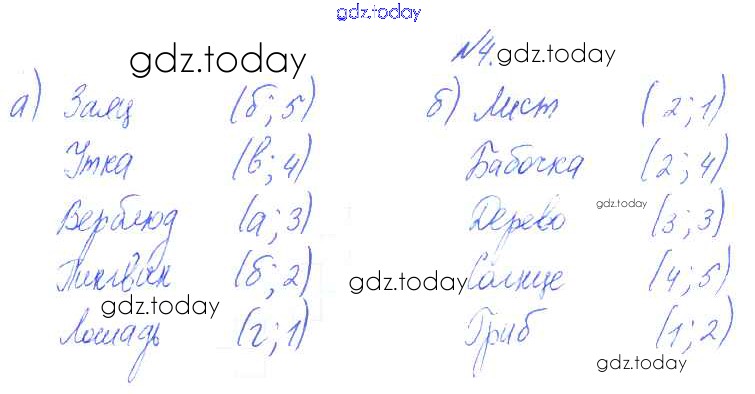 gdz.today
gdz.today
№4. gdz.today
а) Заяц (б; 5)
Утка (в; 4)
Верблюд (а; 3)
Пингвин (б; 2)
gdz.today
Лошадь (г; 1)
б) Лист (2; 1)
Бабочка (2; 4)
gdz.today
Дерево (3; 3)
gdz.today
Солнце (4; 5)
Гриб (1; 2)
gdz.today